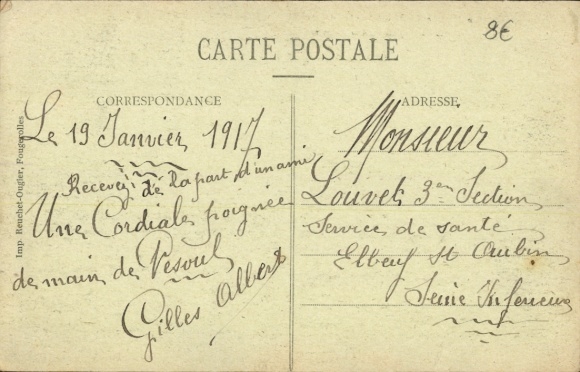 8€
CARTE POSTALE
CORRESPONDANCE
ADRESSE
Imp. Reuchet-Ougier, Fougerolles
Le 19 Janvier 1917
Recevez de la part d'un ami
Une Cordiale poignée
de main de Vesoul
Gilles Albert
Monsieur
Louvet 3e Section
Service de santé
Elbeuf St Aubin
Seine Inferieure